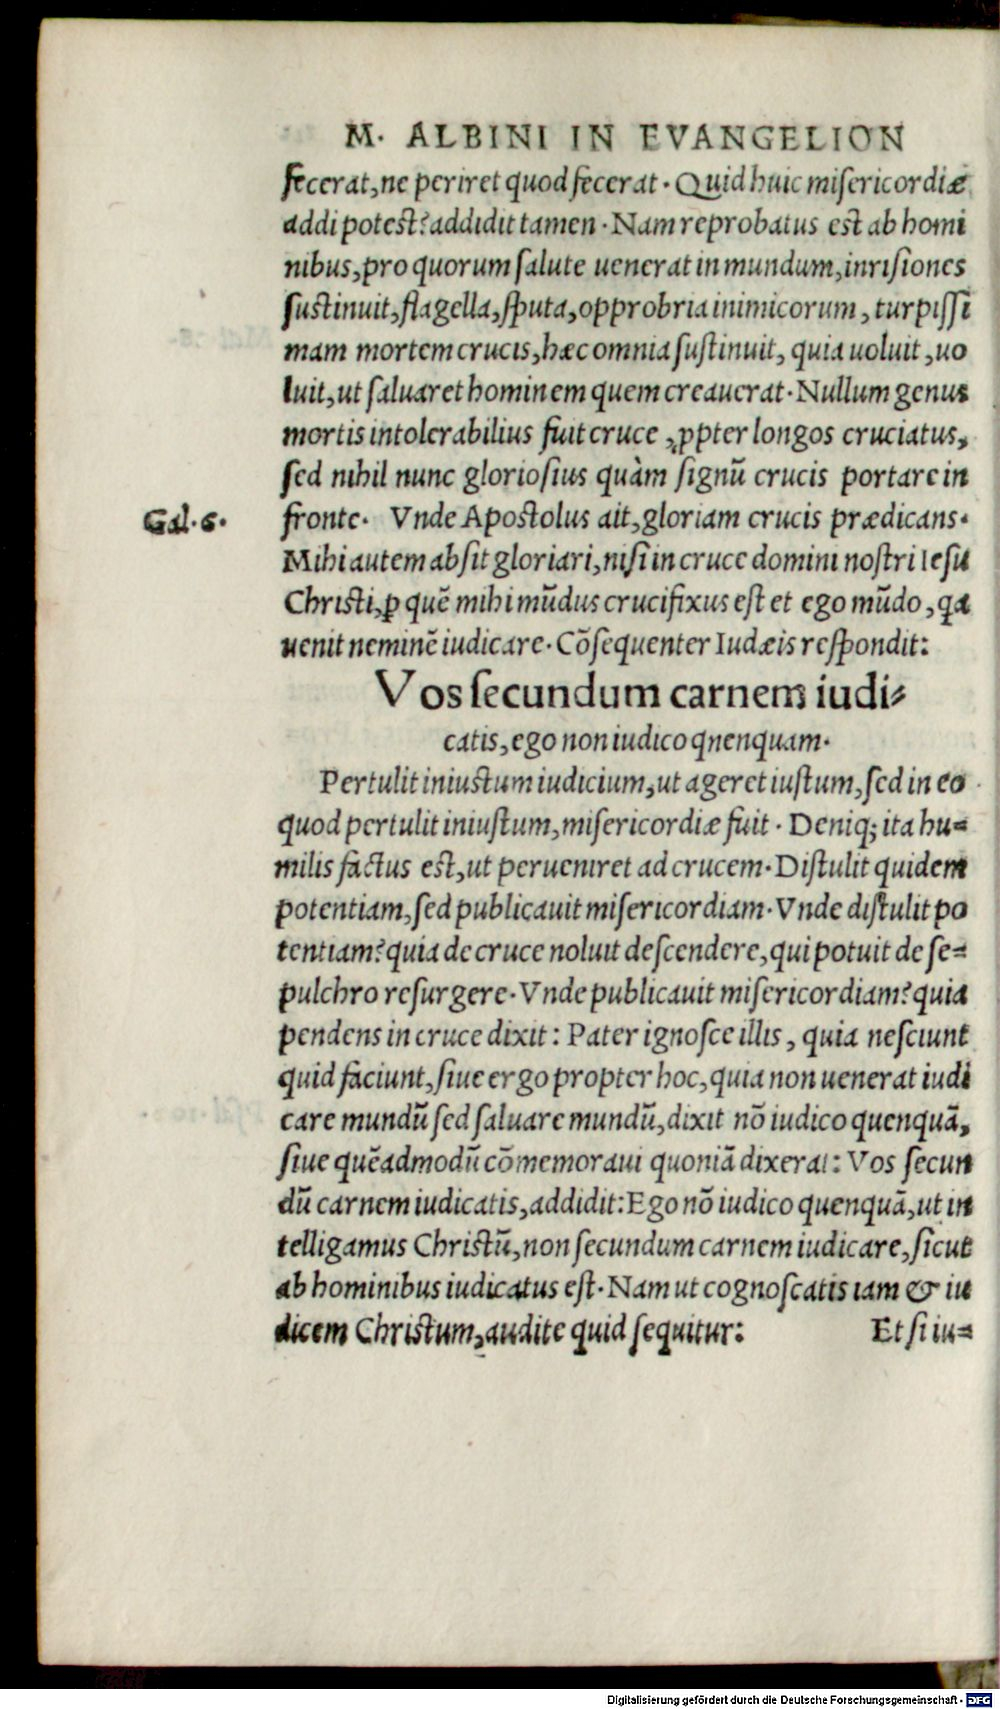 M. ALBINI IN EVANGELION
fecerat, ne periret quod fecerat. Quid huic misericordiæ
addi potest? addidit tamen. Nam reprobatus est ab homi
nibus, pro quorum salute uenerat in mundum, inrisiones
sustinuit, flagella, sputa, opprobria inimicorum, turpissi
mam mortem crucis, hæc omnia sustinuit, quia uoluit, uo
luit, ut saluaret hominem quem creauerat. Nullum genus
mortis intolerabilius fuit cruce, ꝓpter longos cruciatus,
sed nihil nunc gloriosius quàm signū crucis portare in
Gal. 6.
fronte. Vnde Apostolus ait, gloriam crucis prædicans.
Mihi autem absit gloriari, nisi in cruce domini nostri Iesu
Christi, ꝑ quē mihi mūdus crucifixus est et ego mūdo, qa
uenit neminē iudicare. Cōsequenter Iudæis respondit:
Vos secundum carnem iudi-
catis, ego non iudico qnenquam.
Pertulit iniustum iudicium, ut ageret iustum, sed in eo
quod pertulit iniustum, misericordiæ fuit. Deniq; ita hu-
milis factus est, ut perueniret ad crucem. Distulit quidem
potentiam, sed publicauit misericordiam. Vnde distulit po
tentiam? quia de cruce noluit descendere, qui potuit de se-
pulchro resurgere. Vnde publicauit misericordiam? quia
pendens in cruce dixit: Pater ignosce illis, quia nesciunt
quid faciunt, siue ergo propter hoc, quia non uenerat iudi
care mundū sed saluare mundū, dixit nō iudico quenquā,
siue quēadmodū cōmemoraui quoniā dixerat: Vos secun
dū carnem iudicatis, addidit: Ego nō iudico quenquā, ut in
telligamus Christū, non secundum carnem iudicare, sicut
ab hominibus iudicatus est. Nam ut cognoscatis iam & iu
dicem Christum, audite quid sequitur: Et si iu-
Digitalisierung gefördert durch die Deutsche Forschungsgemeinschaft - DFG